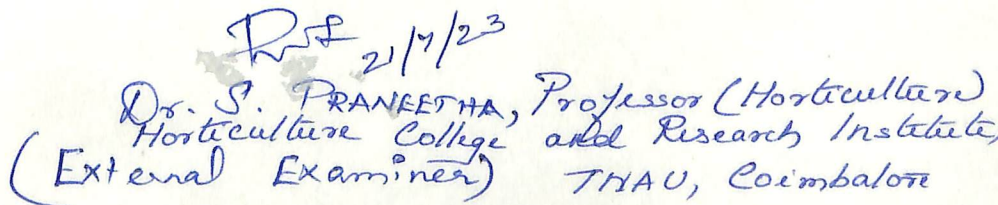 21/7/23
Dr. S. PRANEETHA, Professor (Horticulture)
Horticulture College and Research Institute,
(External Examiner) TNAU, Coimbatore